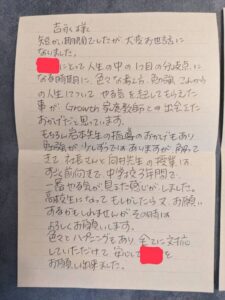 吉永様
短かい期間でしたが大変お世話に
なりました。
にとって人生の中の1つ目の分岐点に
なる時期に、色々な考え方、勉強、これから
の人生について やる気を起こしてもらえた
事がGrowth家庭教師との出会えた
おかげだと思っています。
もちろん岩本先生の指導のおかげもあり
勉強が 少しずつではありますが、解って
きて 社長さんと向井先生の授業は
すごく前向きで 中学校3年間で
一番やる気が見えた感じがしました。
高校生になってもしかしたら又、お願い
するかもしれませんが その時は
よろしくお願いします。
色々とハプニングもあり 全てに対応
していただけて 安心して を
お願い出来ました。